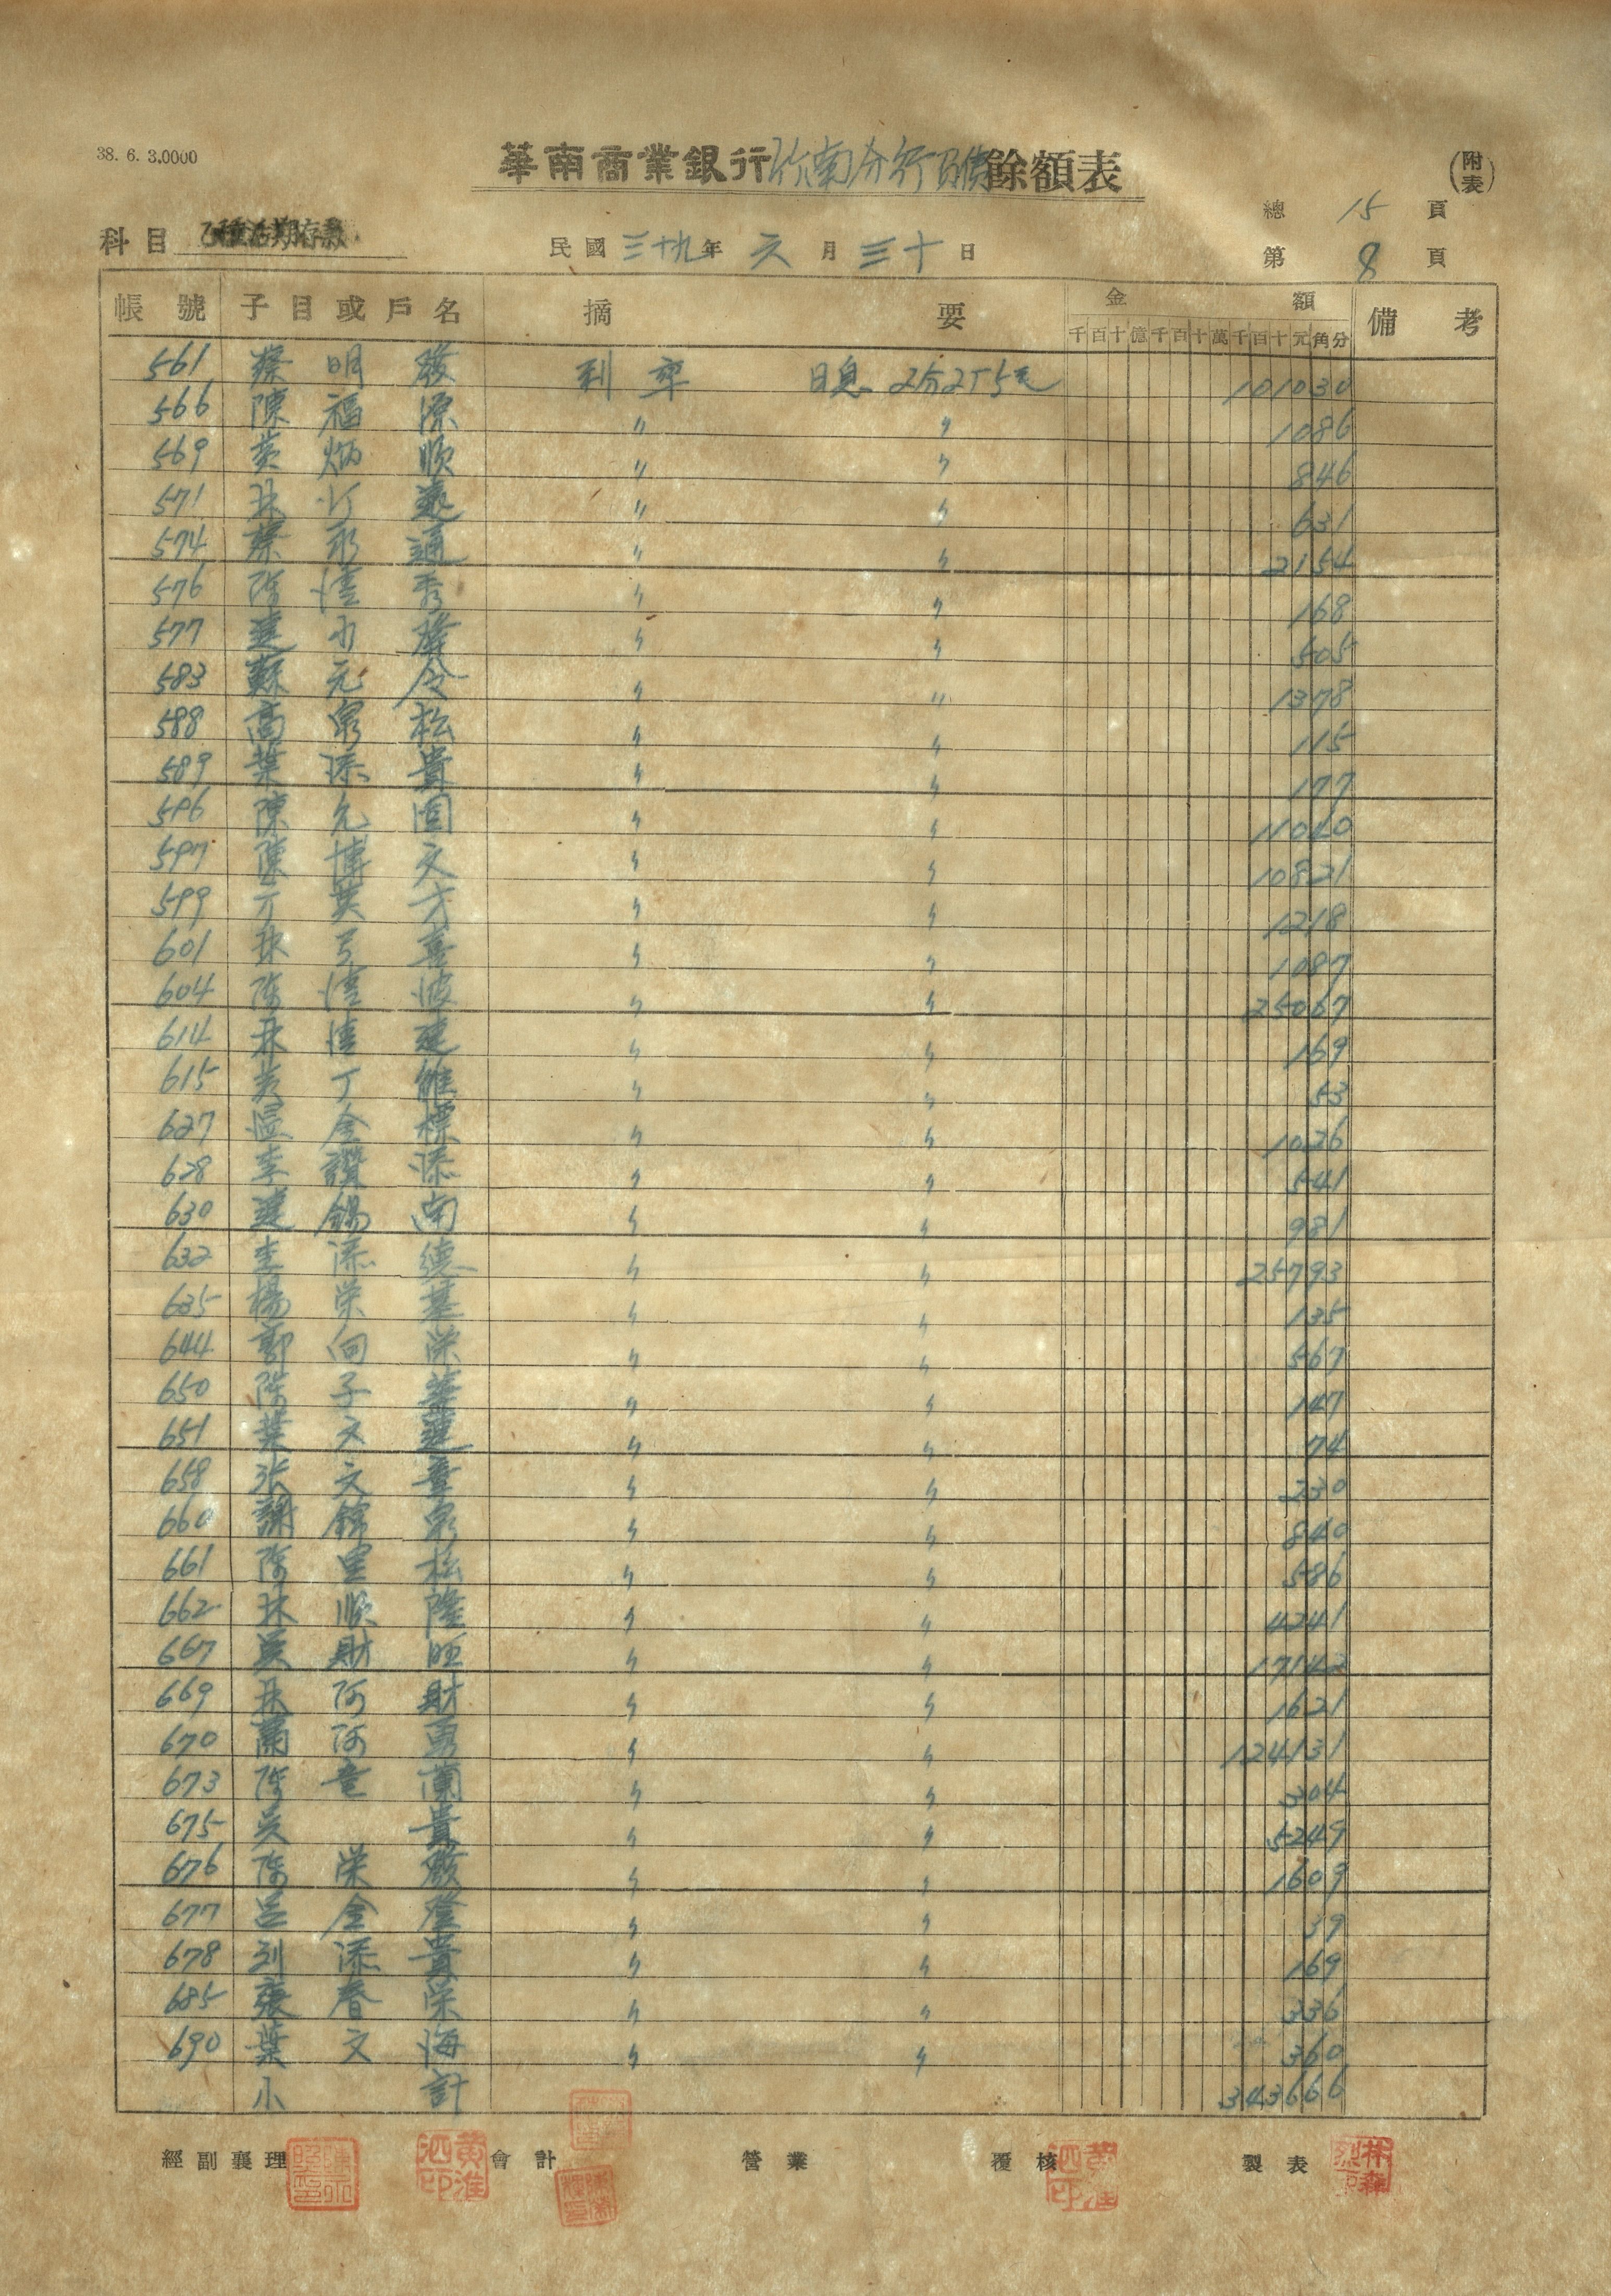 38. 6. 3.0000
華南商業銀行竹南分行負債餘額表
(附表)
總 15 頁
科目 乙種活期存款
民國 三十九 年 六 月 三十 日
第 8 頁
帳號 子目或戶名 摘要 金額 備考
千百十億千百十萬千百十元角分
561 蔡明發 利率 日息 2分2厘5毛 101030
566 陳福源 〃 〃 1086
569 黃炳順 〃 〃 846
571 林 遠 〃 〃 631
574 蔡永通 〃 〃 2154
576 陳清秀 〃 〃 168
577 連 〃 〃 505
583 蘇元令 〃 〃 1378
588 高泉松 〃 〃 115
589 葉添貴 〃 〃 177
596 陳允固 〃 〃 11040
597 陳博文 〃 〃 10821
599 方英才 〃 〃 1218
601 林弓喜 〃 〃 1087
604 陳清波 〃 〃 25067
614 林清連 〃 〃 169
615 黃丁 〃 〃 53
627 金標 〃 〃 1026
628 李讚添 〃 〃 541
630 連錫南 〃 〃 981
632 李添德 〃 〃 25793
635 楊榮基 〃 〃 135
644 郭向榮 〃 〃 567
650 陳子 〃 〃 147
651 葉文蓮 〃 〃 74
658 張文章 〃 〃 230
660 謝錦泉 〃 〃 840
661 陳里松 〃 〃 586
662 林順隆 〃 〃 4241
667 吳財旺 〃 〃 17142
669 林阿財 〃 〃 1621
670 蕭阿勇 〃 〃 124131
673 陳章蘭 〃 〃 304
675 吳貴 〃 〃 5249
676 陳榮發 〃 〃 1609
677 呂金登 〃 〃 39
678 劉添貴 〃 〃 169
685 張春榮 〃 〃 336
690 葉文海 〃 〃 360
小計 343666
經副襄理 會計 營業 覆核 製表